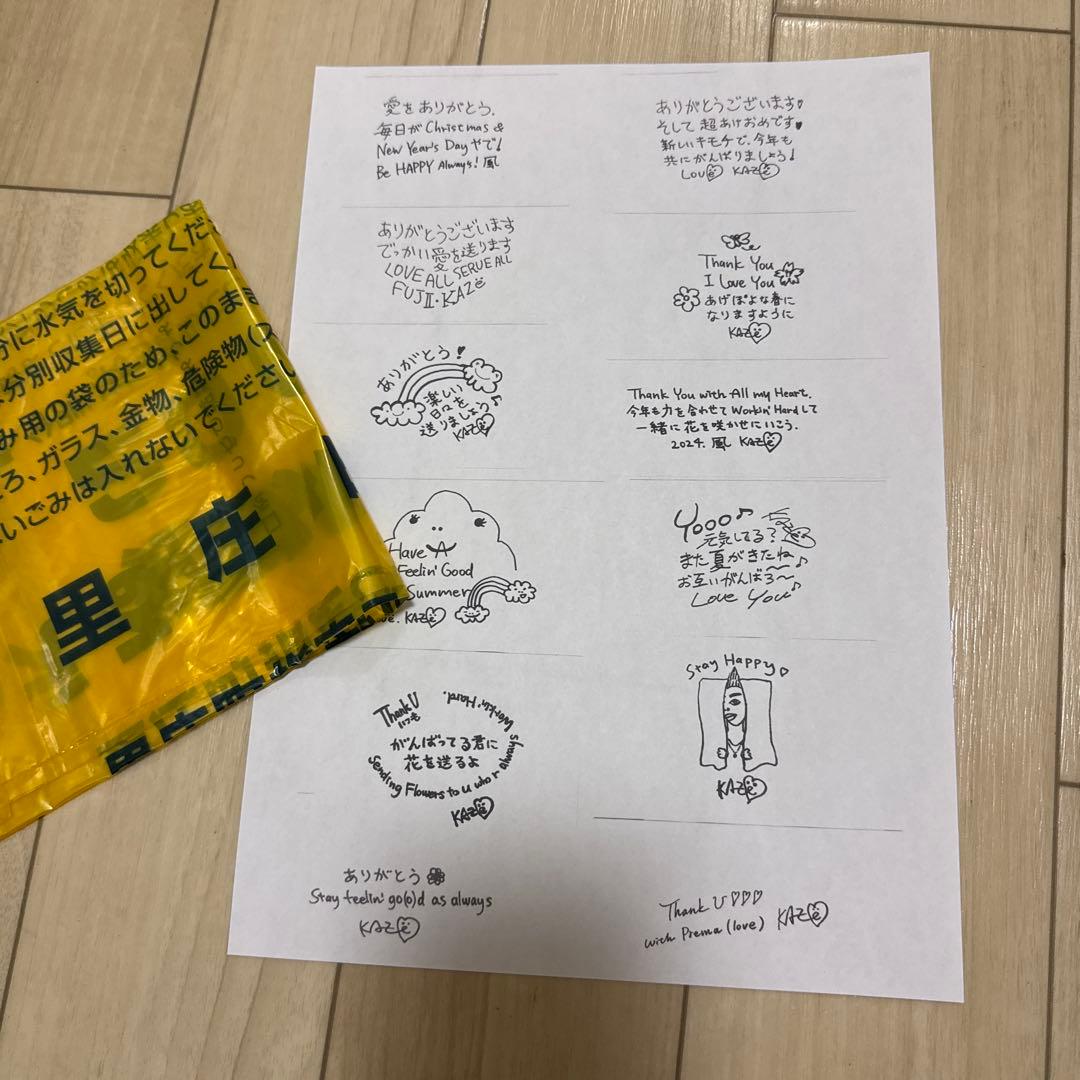 愛をありがとう。
毎日がChristmas &
New Year's Dayやで!
Be HAPPY Always! 風
ありがとうございます♥
そして超あけおめです♥
新しいキモチで、今年も
共にがんばりましょう!
LOVE KAZE
ありがとうございます
でっかい愛を送ります
LOVE ALL SERVE ALL
FUJII・KAZE
Thank You
I Love You
あげぽよな春に
なりますように
KAZE
ありがとう!
楽しい
日々を
送りましょう♪
KAZE
Thank You with All my Heart.
今年も力を合わせて Workin' Hardして
一緒に花を咲かせにいこう。
2024. 風 KAZE
Have A
Feelin' Good
Summer
KAZE
Yooo♪
元気してる?
また夏がきたね
お互いがんばろ〜♪
Love You♪
Thank U
いつも
がんばってる君に
花を送るよ
Sending Flowers to u who r always
Workin' Hard.
KAZE
Stay Happy♡
KAZE
ありがとう
Stay feelin' go(o)d as always
KAZE
Thank U♡♡♡
with Prema (love) KAZE
分に水気を切ってくださ
分別収集日に出してく
み用の袋のため、このまま
ガラス、金物、危険物
ごみは入れないでください
里庄